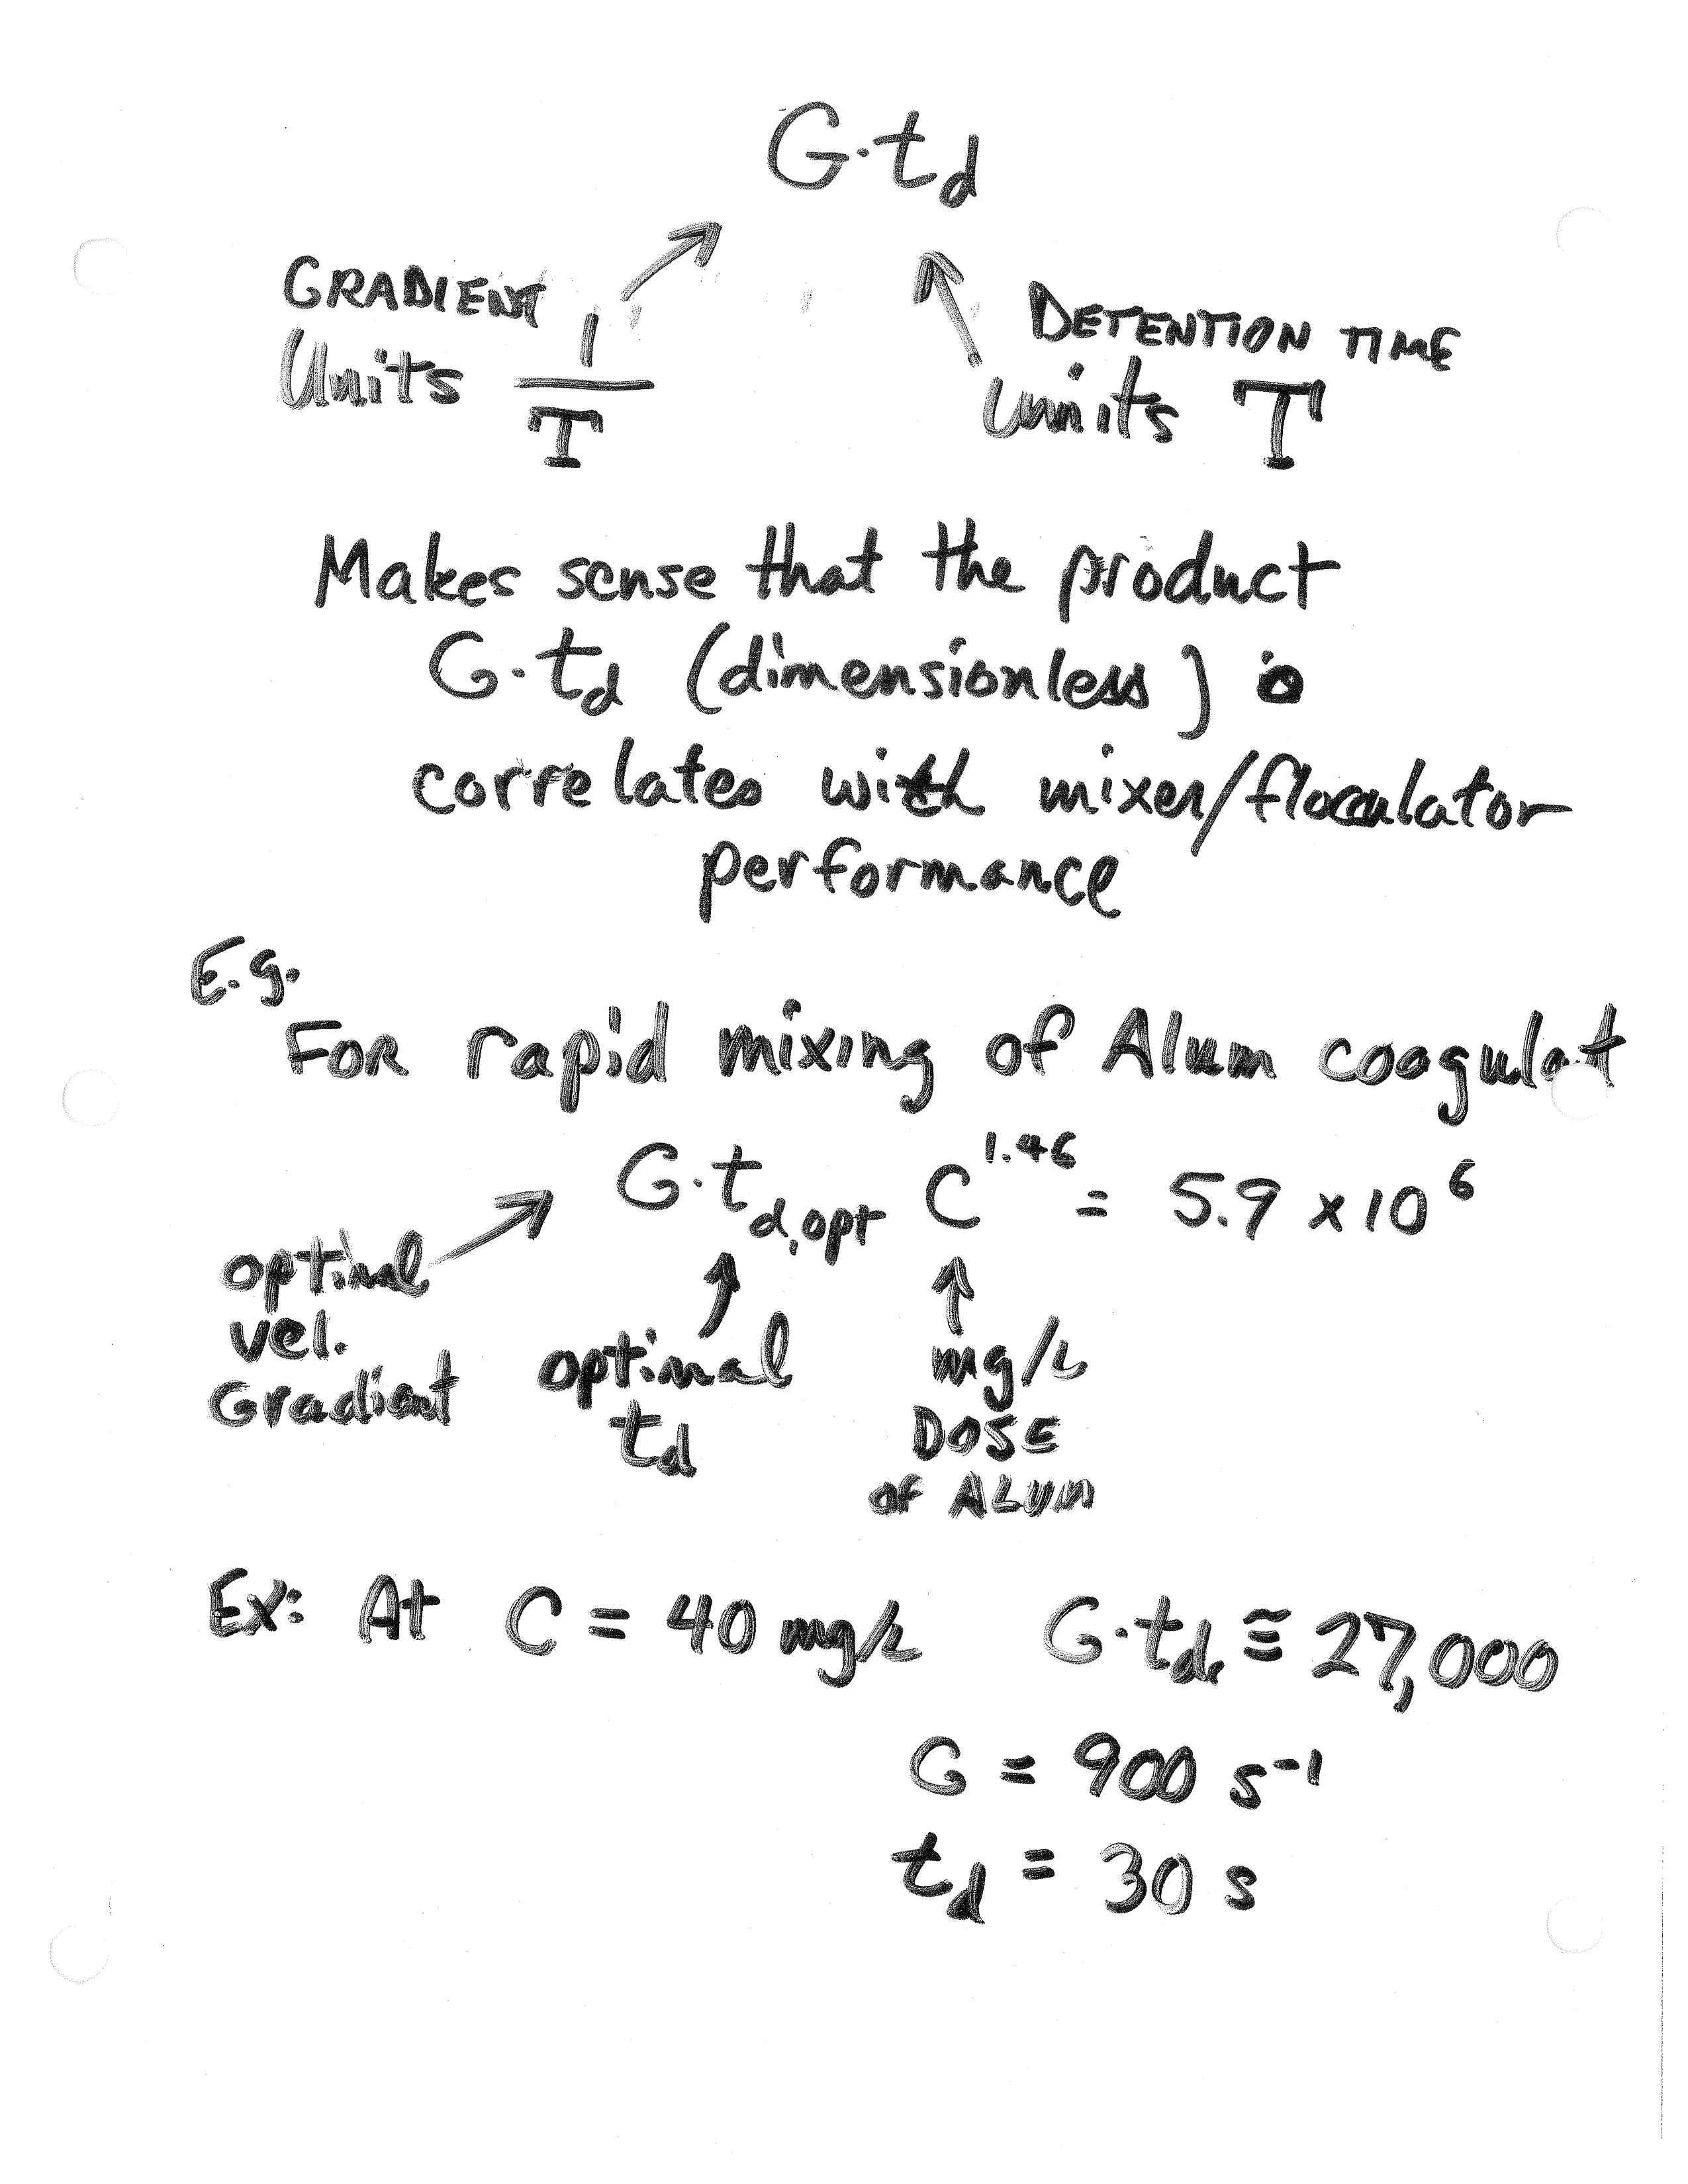 G·td
GRADIENT
Units 1/T
DETENTION TIME
units T
Makes sense that the product
G·td (dimensionless) is
correlates with mixer/flocculator
performance
E.g.
For rapid mixing of Alum coagulat
G·td,opt C^1.46 = 5.9 x 10^6
optimal
vel.
Gradient
optimal
td
mg/L
DOSE
of ALUM
Ex: At C = 40 mg/L G·td ≅ 27,000
G = 900 s^-1
td = 30 s